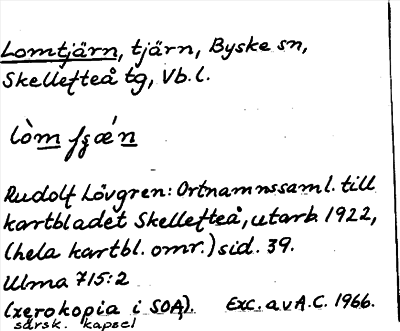 Lomtjärn, tjärn, Byske sn,
Skellefteå tg, Vb. l.
lòm
Rudolf Lövgren: Ortnamnssaml. till
kartbladet Skellefteå, utarb. 1922,
(hela kartbl. omr.) sid. 39.
Ulma 715:2
(xerokopia i SOA). Exc. av A.C. 1966.
särsk. kapsel